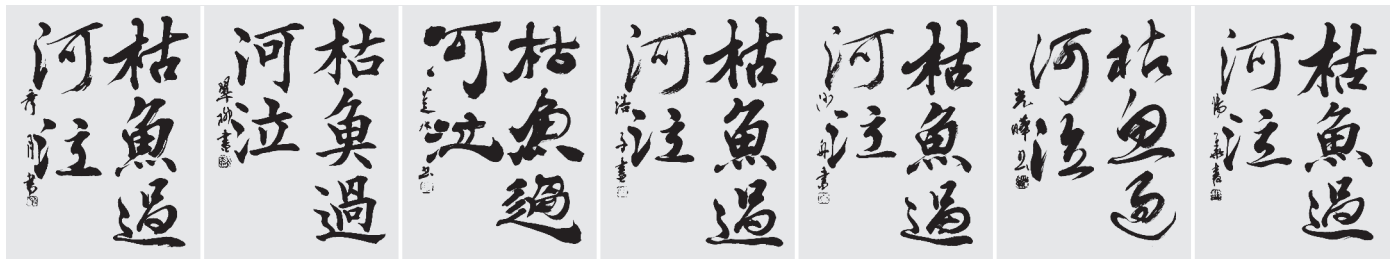 枯魚過
河泣
枯魚過
河泣
翠柳書
枯魚過
河泣
枯魚過
河泣
浩子書
枯魚過
河泣
枯魚過
河泣
光暉書
枯魚過
河泣